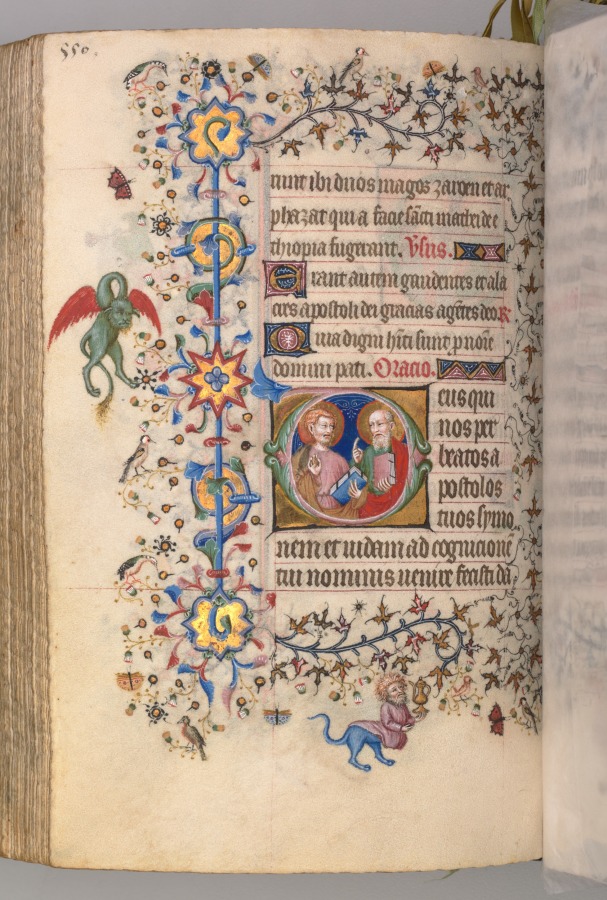 550.
runt ibi duos magos zaroen et ar
phazat qui a facie sācti mathei de e
thiopia fugerant. Vsus.
Erant autem gaudentes et ala
cres apostoli dei gracias agētes deo R̄.
Quia digni hīti sunt p noīe
domini pati. Oracio.
Deus qui
nos per
beatos a
postolos
tuos symo
nem et iudam ad cognicionē
tui nominis uenire fecisti dā